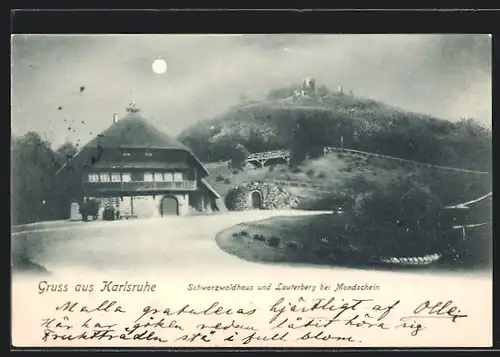 Gruss aus Karlsruhe
Schwarzwaldhaus und Lauterberg bei Mondschein
Malla gratuleras hjärtligt af Olle.
Här har göken redan låtit höra sig
Fruktträden stå i full blom.